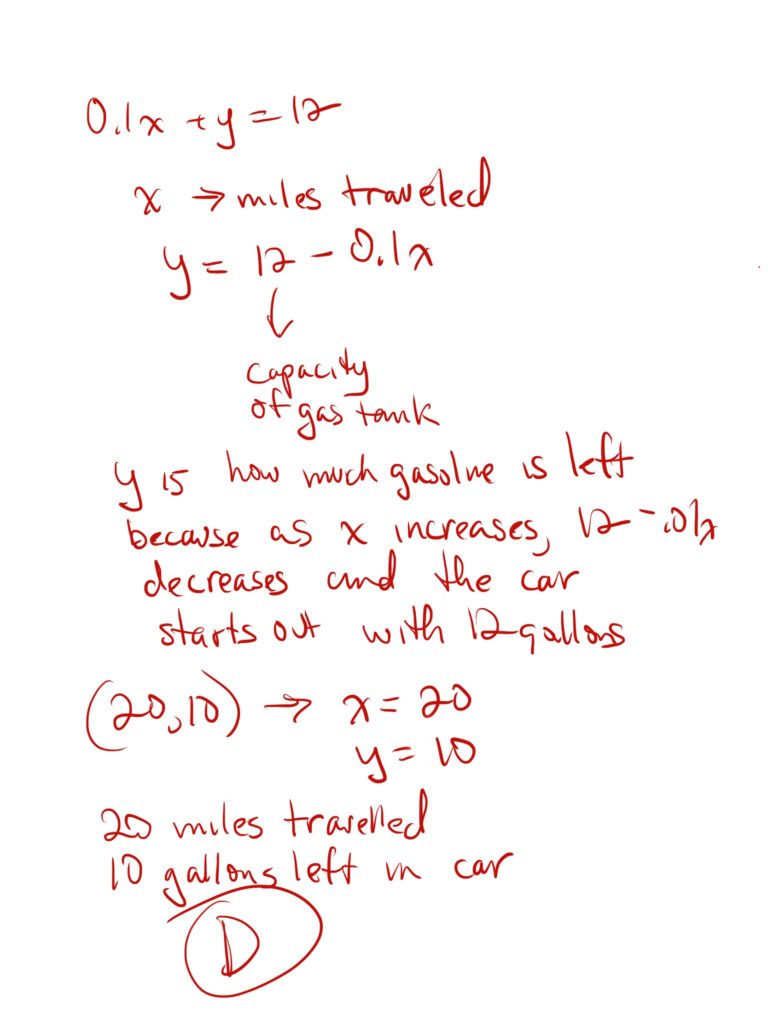 0.1x + y = 12
x → miles traveled
y = 12 - 0.1x
↓
capacity
of gas tank
y is how much gasoline is left
because as x increases, 12 - .01x
decreases and the car
starts out with 12 gallons
(20,10) → x = 20
y = 10
20 miles travelled
10 gallons left in car
D